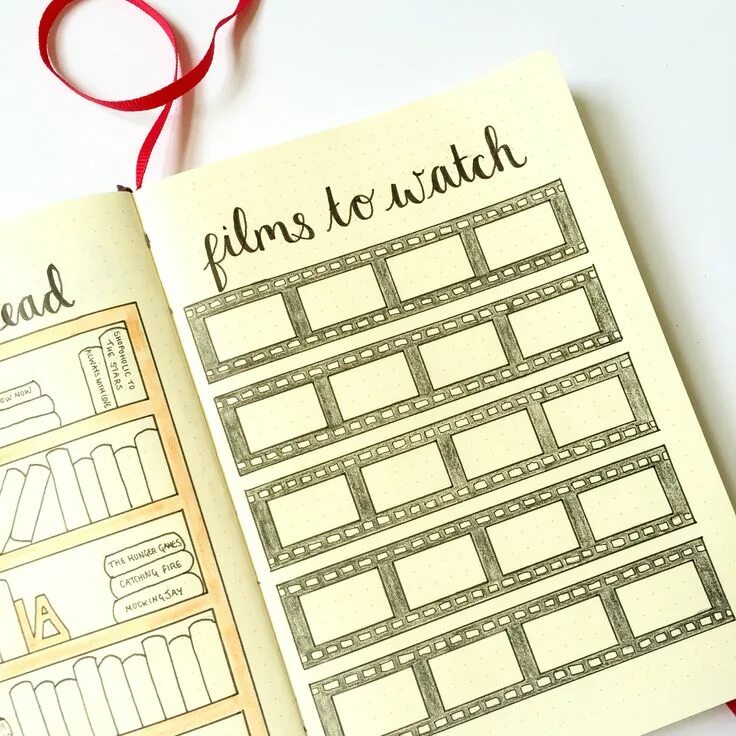 ead
OW NOW
ALWAYS WITH LOVE
SHOPAHOLIC TO
THE STARS
THE HUNGER GAMES
CATCHING FIRE
MOCKINGJAY
films to watch